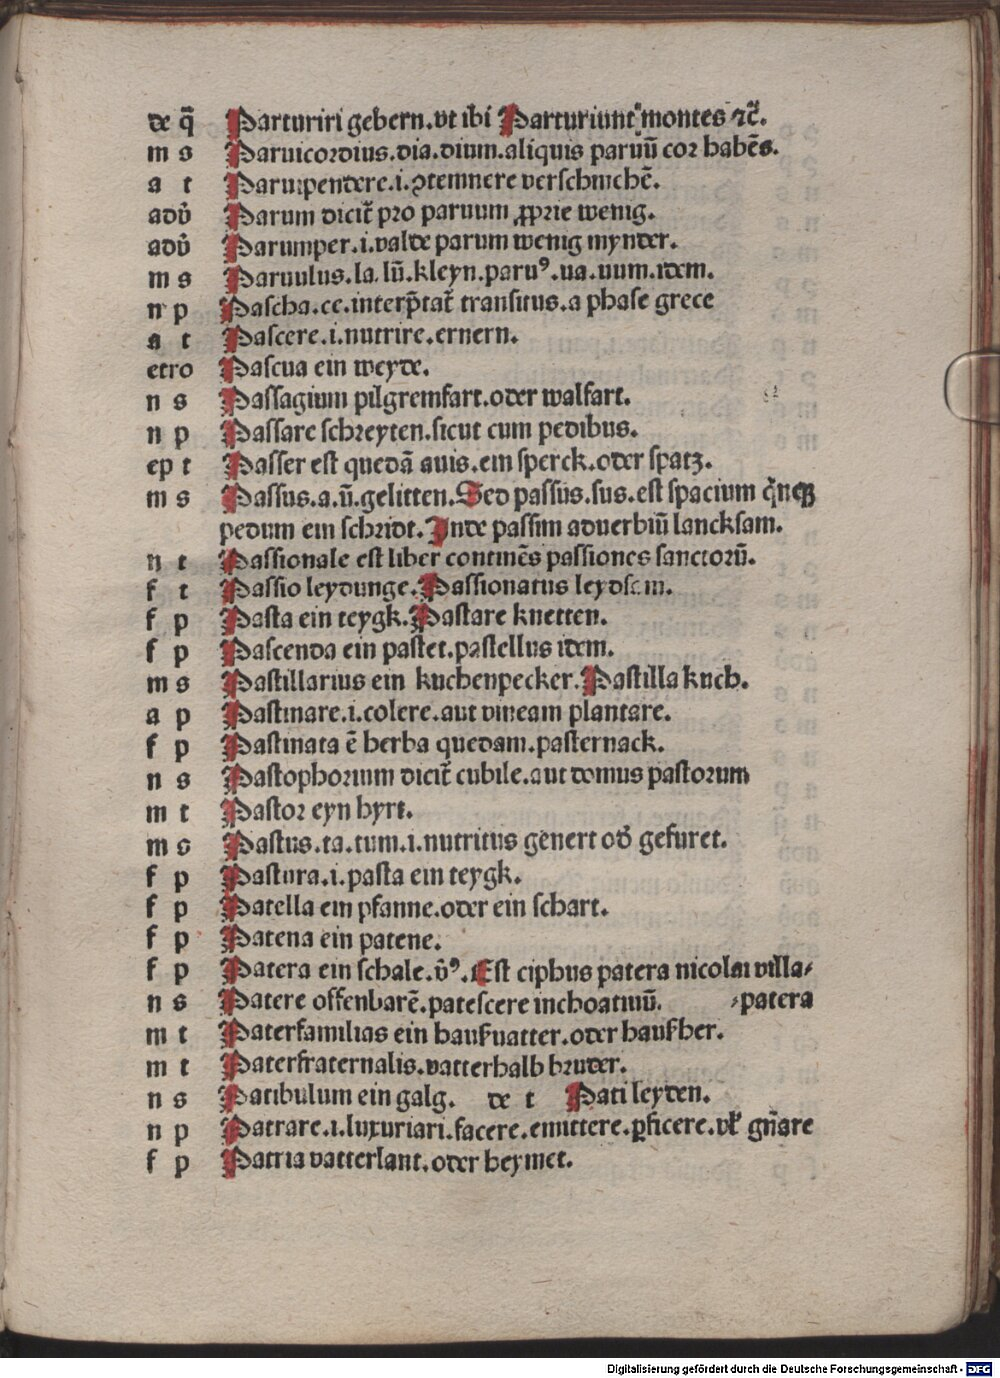 de q̄ Parturiri gebern. vt ibi Parturiunt montes ⁊c̄.
m s Paruicordius. dia. dium. aliquis paruū cor habēs.
a t Paruipendere. i. ꝯtemnere verschmehē.
adv̄ Parum dicit̄ pro paruum ꝓprie wenig.
adv̄ Parumper. i. valde parum wenig mynder.
m s Paruulus. la. lū. kleyn. paruꝰ. ua. uum. idem.
n p Pascha. ce. interp̄tat̄ transitus. a phase grece
a t Pascere. i. nutrire. ernern.
etro Pascua ein weyde.
n s Passagium pilgremfart. oder walfart.
n p Passare schreyten. sicut cum pedibus.
ep t Passer est quedā auis. ein sperck. oder spatz.
m s Passus. a. ū. gelitten. Sed passus. sus. est spacium q̄nqꝫ
pedum ein schridt. Inde passim aduerbiū lancksam.
n t Passionale est liber continēs passiones sanctorū.
f t Passio leydunge. Passionatus leydsam.
f p Pasta ein teygk. Pastare knetten.
f p Pascenda ein pastet. pastellus idem.
m s Pastillarius ein kuchenpecker. Pastilla kuch.
a p Pastinare. i. colere. aut vineam plantare.
f p Pastinata ē herba quedam. pasternack.
n s Pastophorium dicit̄ cubile. aut domus pastorum
m t Pastor eyn hyrt.
m s Pastus. ta. tum. i. nutritus genert od̄ gefuret.
f p Pastura. i. pasta ein teygk.
f p Patella ein pfanne. oder ein schart.
f p Patena ein patene.
f p Patera ein schale. v̄ꝰ. Est ciphus patera nicolai villa⸗
n s Patere offenbarē. patescere inchoatiuū. ⸗patera
m t Paterfamilias ein haußuatter. oder haußher.
m t Paterfraternalis. vatterhalb bruder.
n s Patibulum ein galg. de t Pati leyden.
n p Patrare. i. luxuriari. facere. emittere. ꝑficere. vl̄ gn̄are
f p Patria vatterlant. oder heymet.
Digitalisierung gefördert durch die Deutsche Forschungsgemeinschaft - DFG